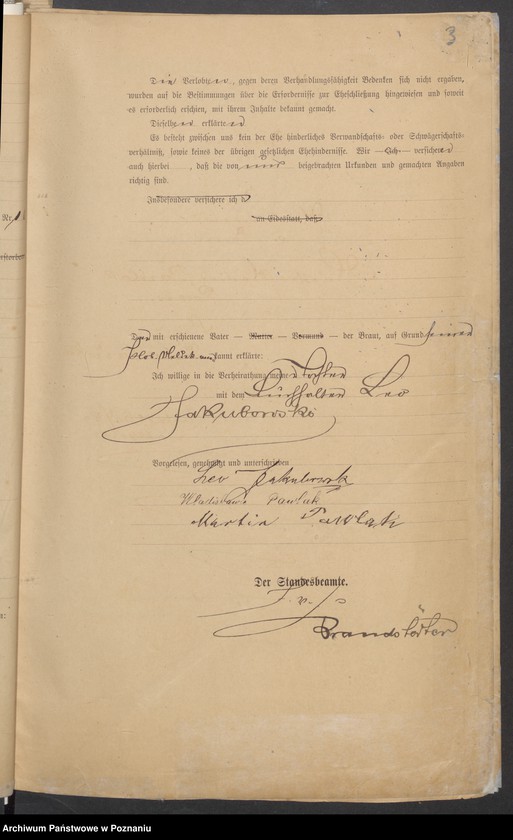 3
Die Verlobten, gegen deren Verhandlungsfähigkeit Bedenken sich nicht ergaben,
wurden auf die Bestimmungen über die Erfordernisse zur Eheschließung hingewiesen und soweit
es erforderlich erschien, mit ihrem Inhalte bekannt gemacht.
Dieselben erklärten
Es besteht zwischen uns kein der Ehe hinderliches Verwandschafts- oder Schwägerschafts-
verhältniß, sowie keines der übrigen gesetzlichen Ehehindernisse. Wir — Ich — versichern
auch hierbei, daß die von uns beigebrachten Urkunden und gemachten Angaben
richtig sind.
Insbesondere versichere ich d
an Eidesstatt, daß
Nr. 1
Der mit erschienene Vater — Mutter — Vormund — der Braut, auf Grund seiner
kannt erklärte:
Ich willige in die Verheirathung meiner Tochter
mit dem Buchhalter Leo
Jakubowski
Vorgelesen, genehmigt und unterschrieben
Leo Jakubowski
Wladislawa Pawlak
Martin Pawlak
Der Standesbeamte.
Brandstädter
Archiwum Państwowe w Poznaniu